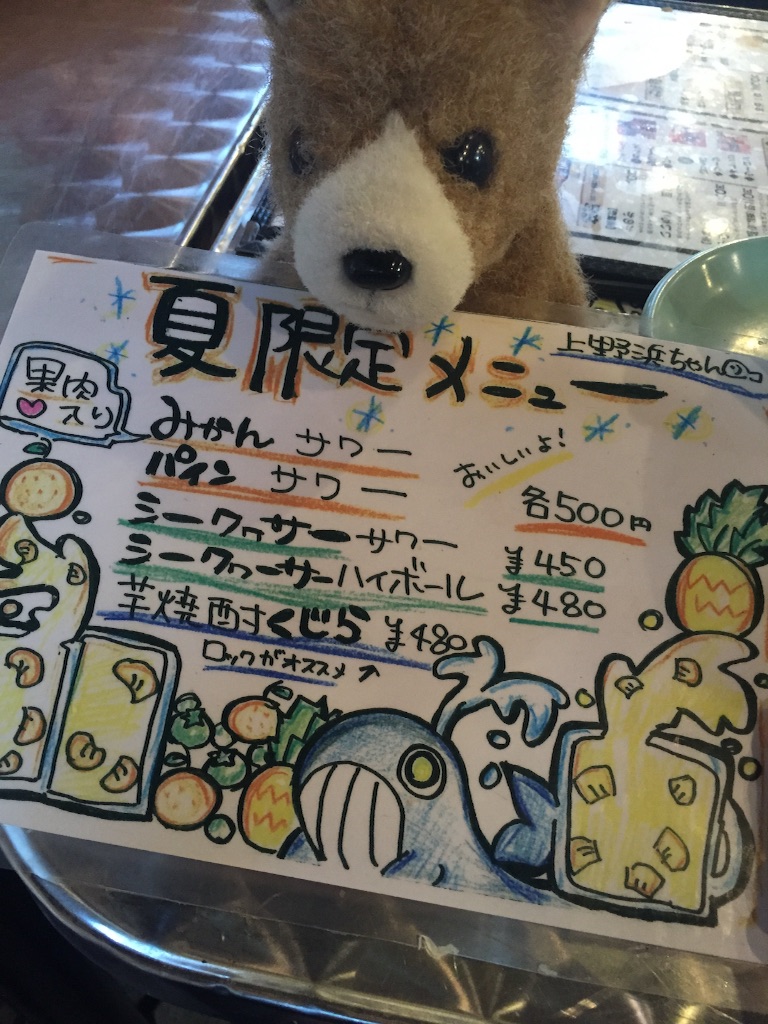 夏限定メニュー
上野浜ちゃん
果肉
入り
みかん サワー
パイン サワー
おいしいよ!
各500円
シークヮサーサワー ¥450
シークヮーサーハイボール ¥480
芋焼酎くじら ¥480
ロックがオススメ↑